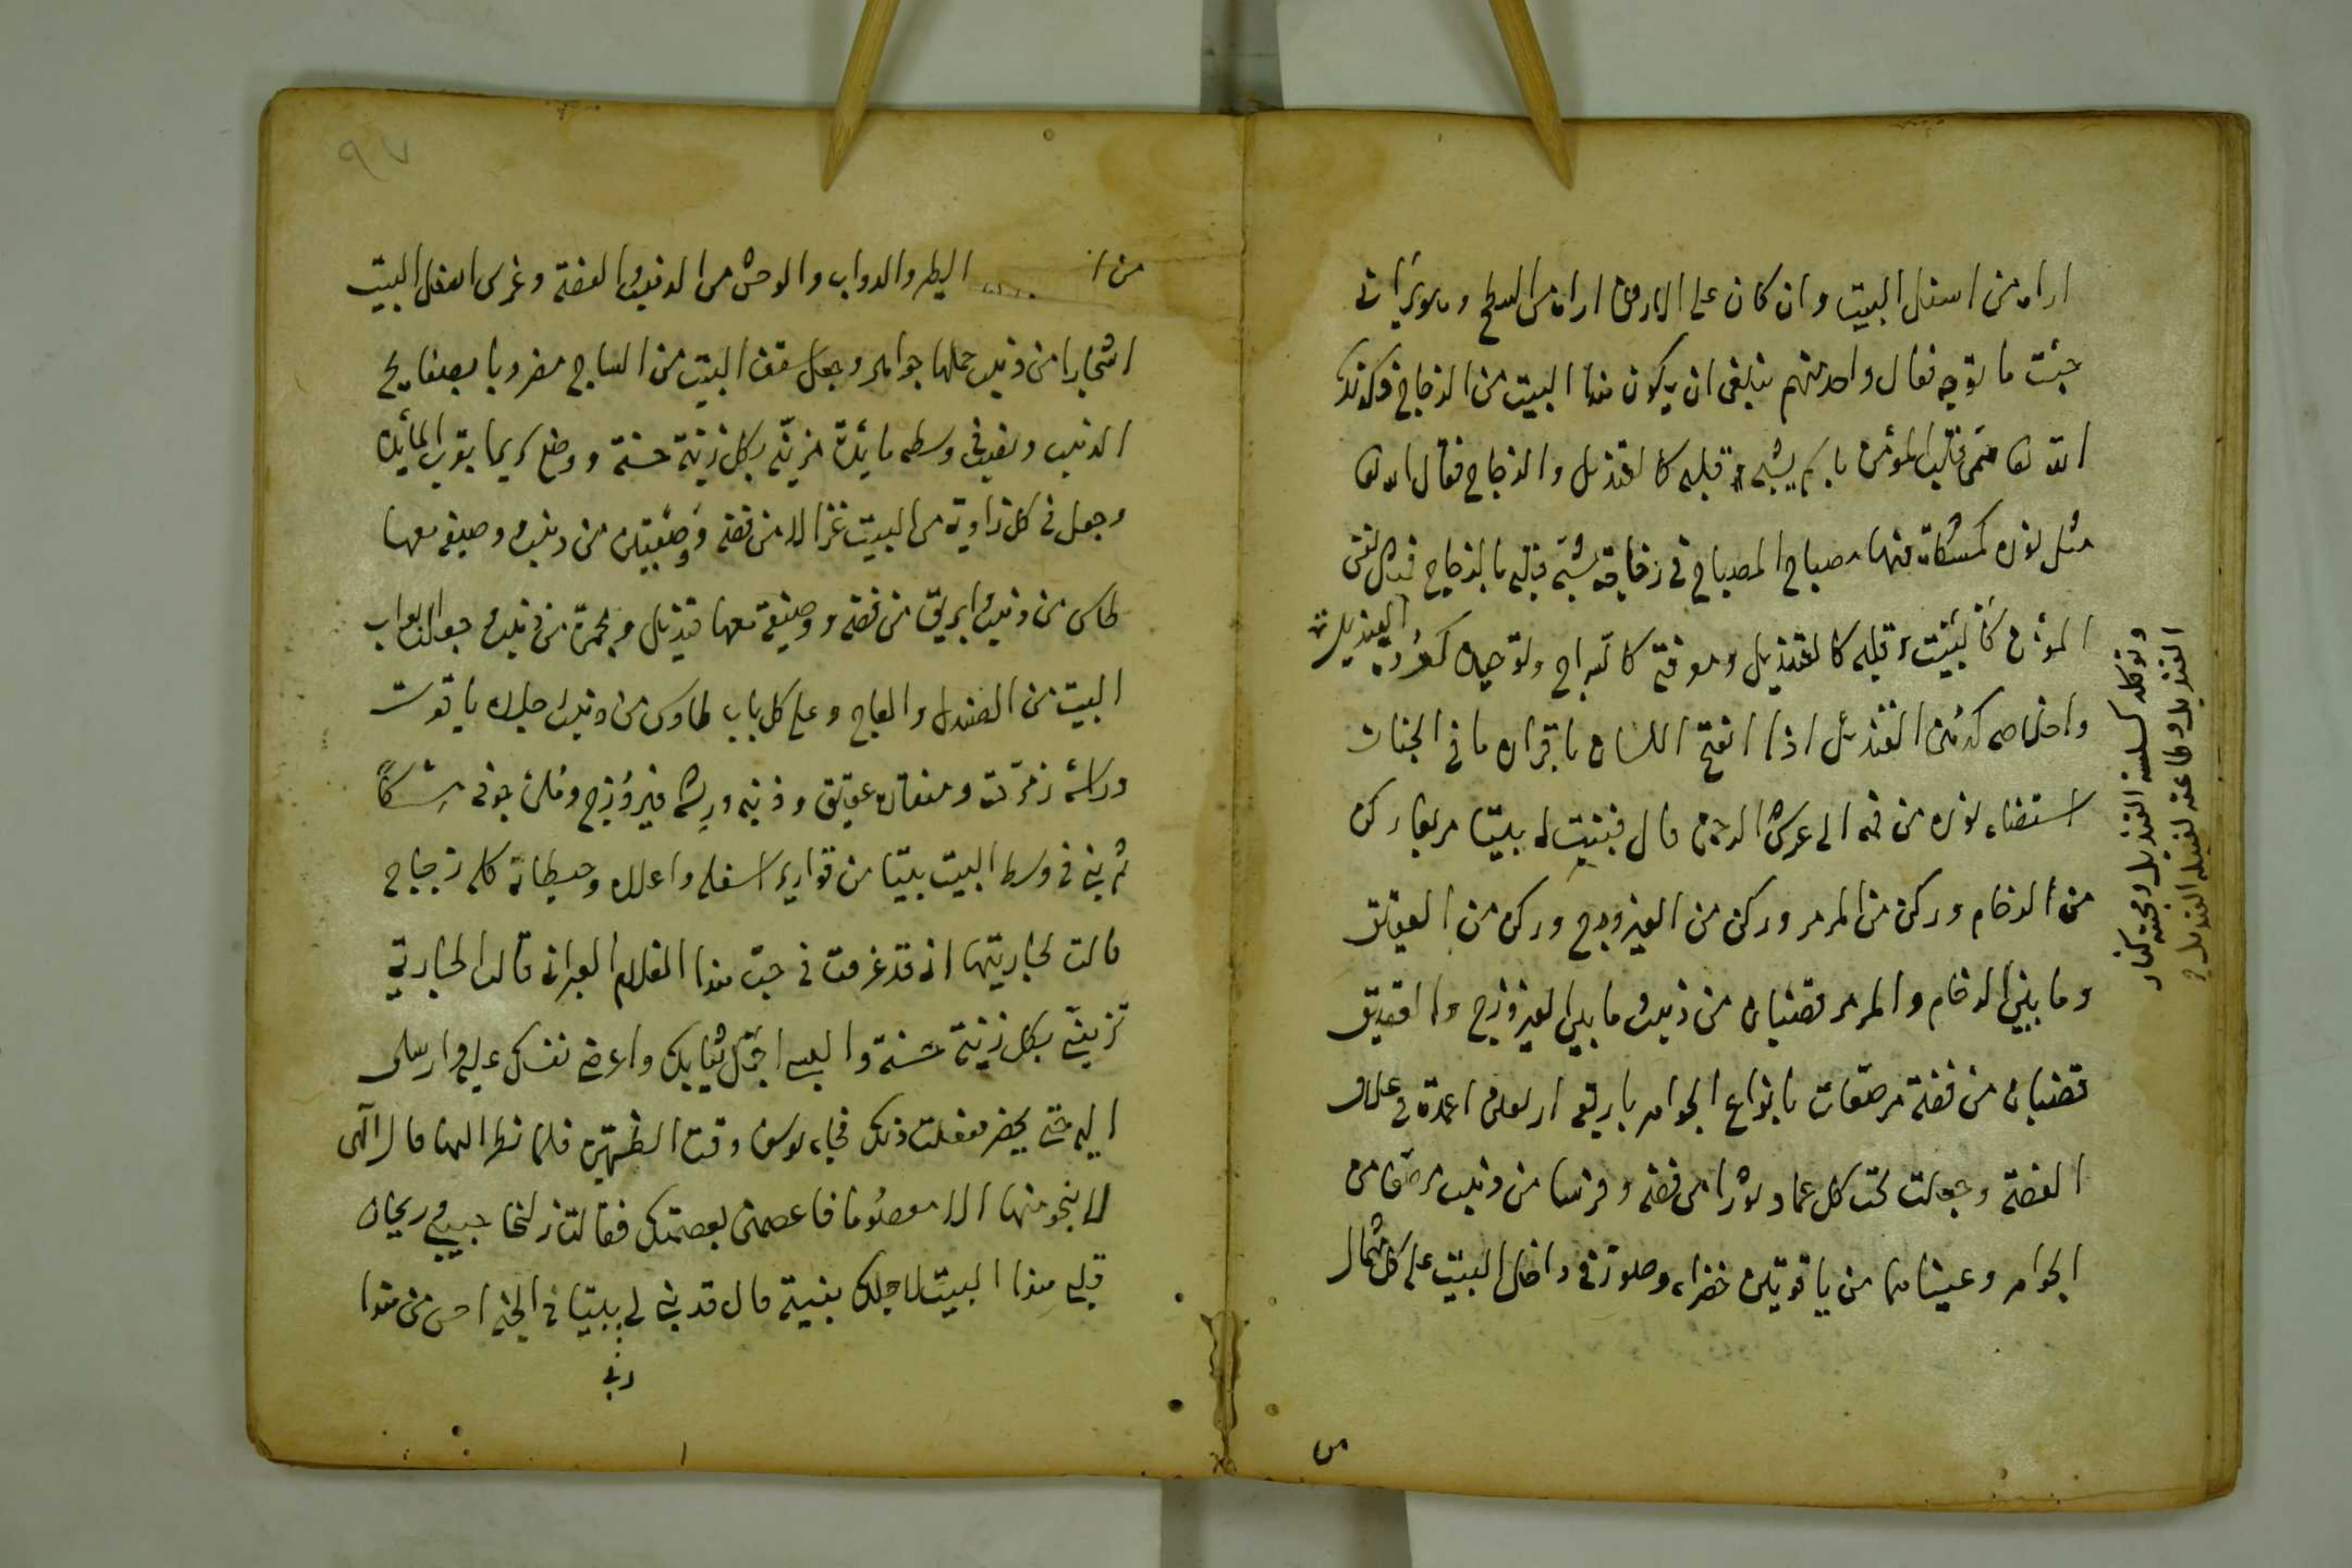 اراه من اسفل البيت وان كان على الارض اراه من السطح
حيث ما توجه فقال واحد منهم ينبغى ان يكون هذا البيت من الزجاج فكذلك
الله تعا قلب المؤمن قلبه كالقنديل والزجاج فقال الله تعا
مثل نوره كمشكاة فيها مصباح المصباح فى زجاجة شبّه قلبه بالزجاج
المؤمن كالبيت وقلبه كالقنديل ومعرفته كالسراج وتوحيده
واخلاصه كدهن القنديل اذا انفتح اللسان باقرار ما فى الجنان
استضاء نوره من فمه الى عرش الرحمن قال فبنيت له بيتا مربعا ركن
من الرخام وركن من المرمر وركن من الفيروزج وركن من العقيق
وما بين الرخام والمرمر قضبان من ذهب وما بين الفيروزج والعقيق
قضبان من فضة مرصعات بانواع الجواهر باربعة اربعين اعمدة فى
الفضة وجعلت تحت كل عماد ثورا من فضة وفرسا من ذهب مرصعا من
الجواهر وعيناهما من ياقوتين خضراء وصلوة فى داخل البيت على كل
وتوكله كسلسلة القنديل ومحبته كنار
القنديل وطاعته لفتيلة القنديل
من
الطير والدواب والوحش من الذهب والفضة وغرس اسفل البيت
اشجارا من ذهب حملها جواهر وجعل سقف البيت من الساج مضروبا بصفايح
الذهب ونصب فى وسطه مائدة مزينة بكل زينة حسنة ووضع كريما بقرب المائدة
وجعل فى كل زاوية من البيت غزالا من فضة ووصيفتين من ذهب وصيفة معها
طاس من ذهب وابريق من فضة ووصيفة معها قنديل ومجمرة من ذهب وجعل ابواب
البيت من الصندل والعاج وعلى كل باب طاوس من ذهب رجلاه ياقوت
وراسه زمردة ومنقاره عقيق وذنبه وريشه فيروزج وملئ جوفه مشكا
ثم بنى فى وسط البيت بيتا من قوارير اسفله واعلاه وحيطانه كله زجاج
قالت لجاريتها انى قد غرقت فى حب هذا الغلام العبرانى قالت الجارية
تزينى بكل زينة حسنة والبسى اجمل ثيابك واعرضى نفسك عليه وارسلى
اليه حتى يحضر ففعلت ذلك فجاء يوسف وقت الظهيرة فلما نظر اليها قال الهى
لا ينجو منها الا معصوما فاعصمنى بعصمتك فقالت زليخا حبيبى وريحان
قلبى هذا البيت لاجلك بنيته قال قد بنى لى بيتا فى الجنة احسن من هذا
ربى